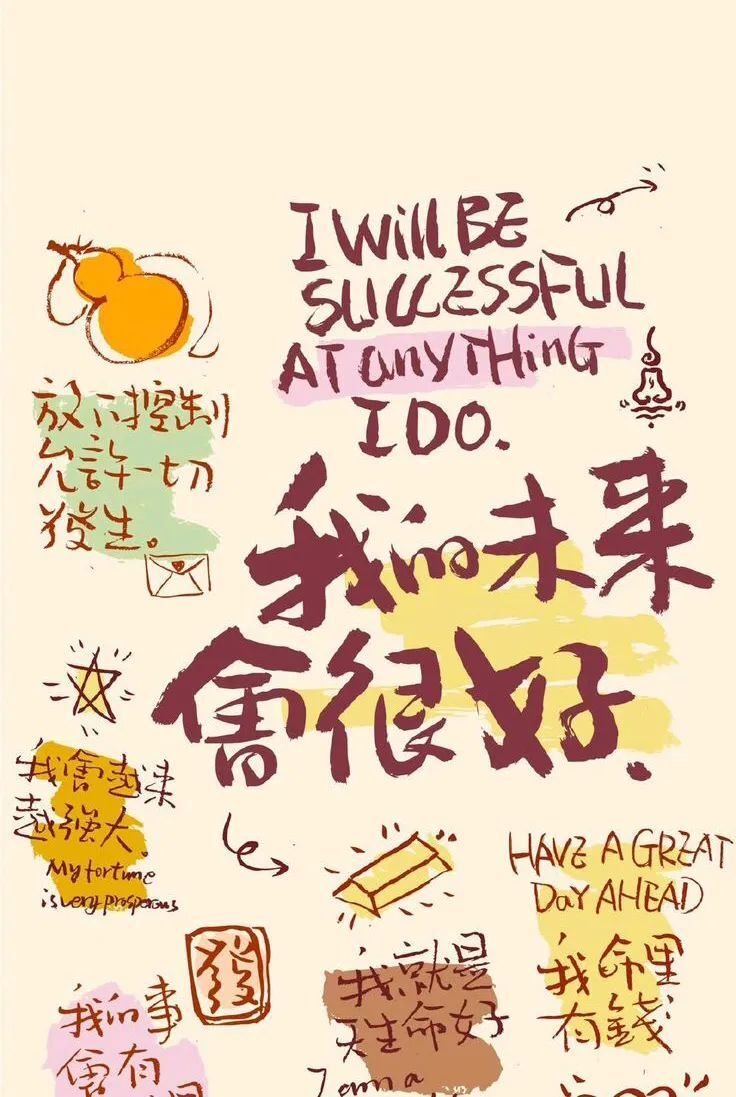 I Will BE
SUCCESSFUL
AT anyTHinG
I DO.
放下控制
允許一切
發生。
我的未来
會很好.
我會越来
越強大。
My fortune
is very prosperous
HAVE A GREAT
Day AHEAD
我命里
有錢
發
我就是
天生命好
I am a
我的事
會有